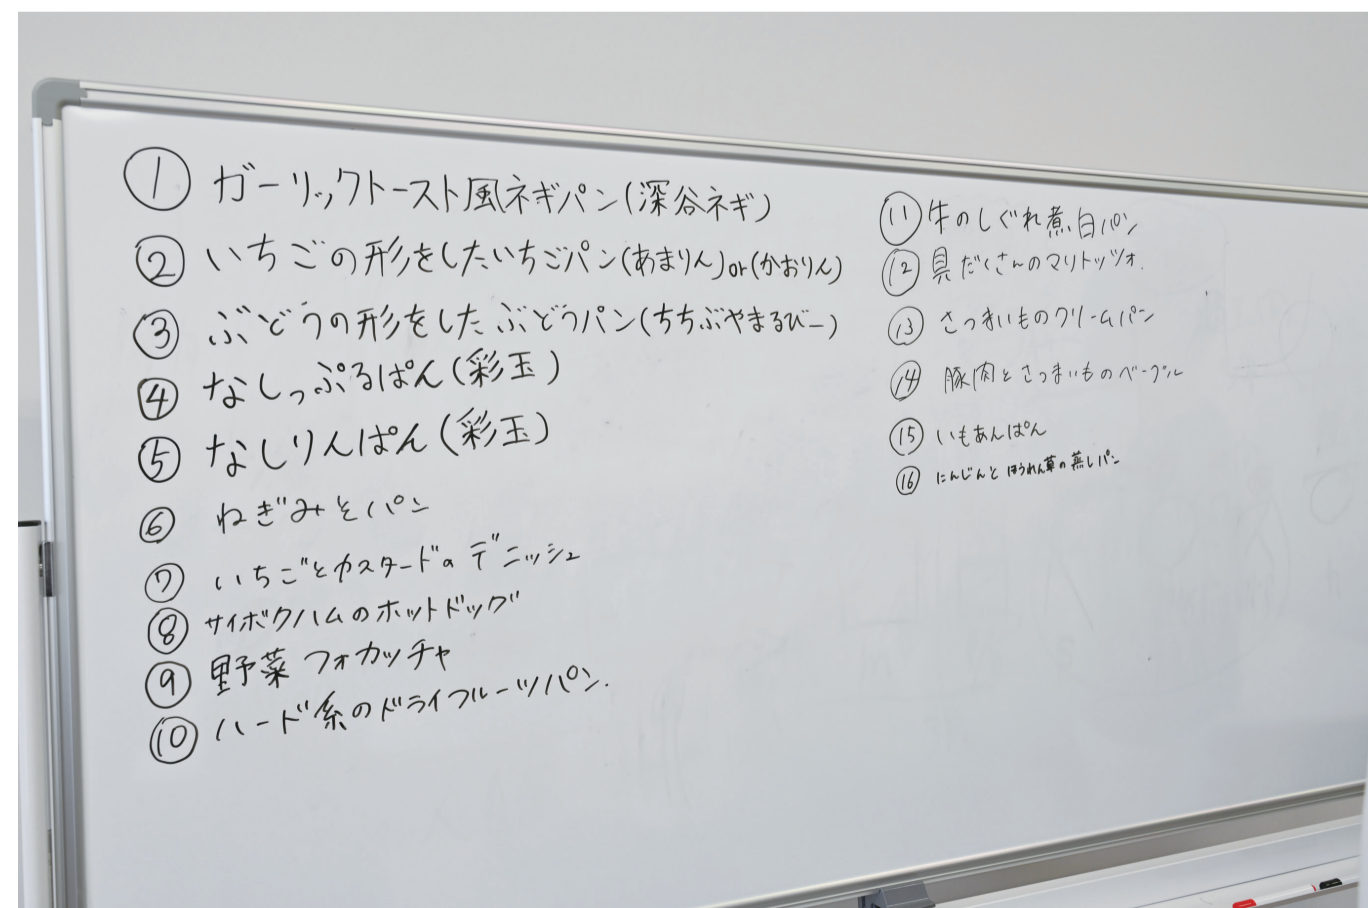 ① ガーリックトースト風ネギパン(深谷ネギ)
② いちごの形をしたいちごパン(あまりん)or(かおりん)
③ ぶどうの形をしたぶどうパン(ちちぶやまるびー)
④ なしっぷるぱん(彩玉)
⑤ なしりんぱん(彩玉)
⑥ ねぎみそパン
⑦ いちごとカスタードのデニッシュ
⑧ サイボクハムのホットドッグ
⑨ 野菜フォカッチャ
⑩ ハード系のドライフルーツパン.
⑪ 牛のしぐれ煮白パン
⑫ 具だくさんのマリトッツォ.
⑬ さつまいものクリームパン
⑭ 豚肉とさつまいものベーグル
⑮ いもあんぱん
⑯ にんじんとほうれん草の蒸しパン